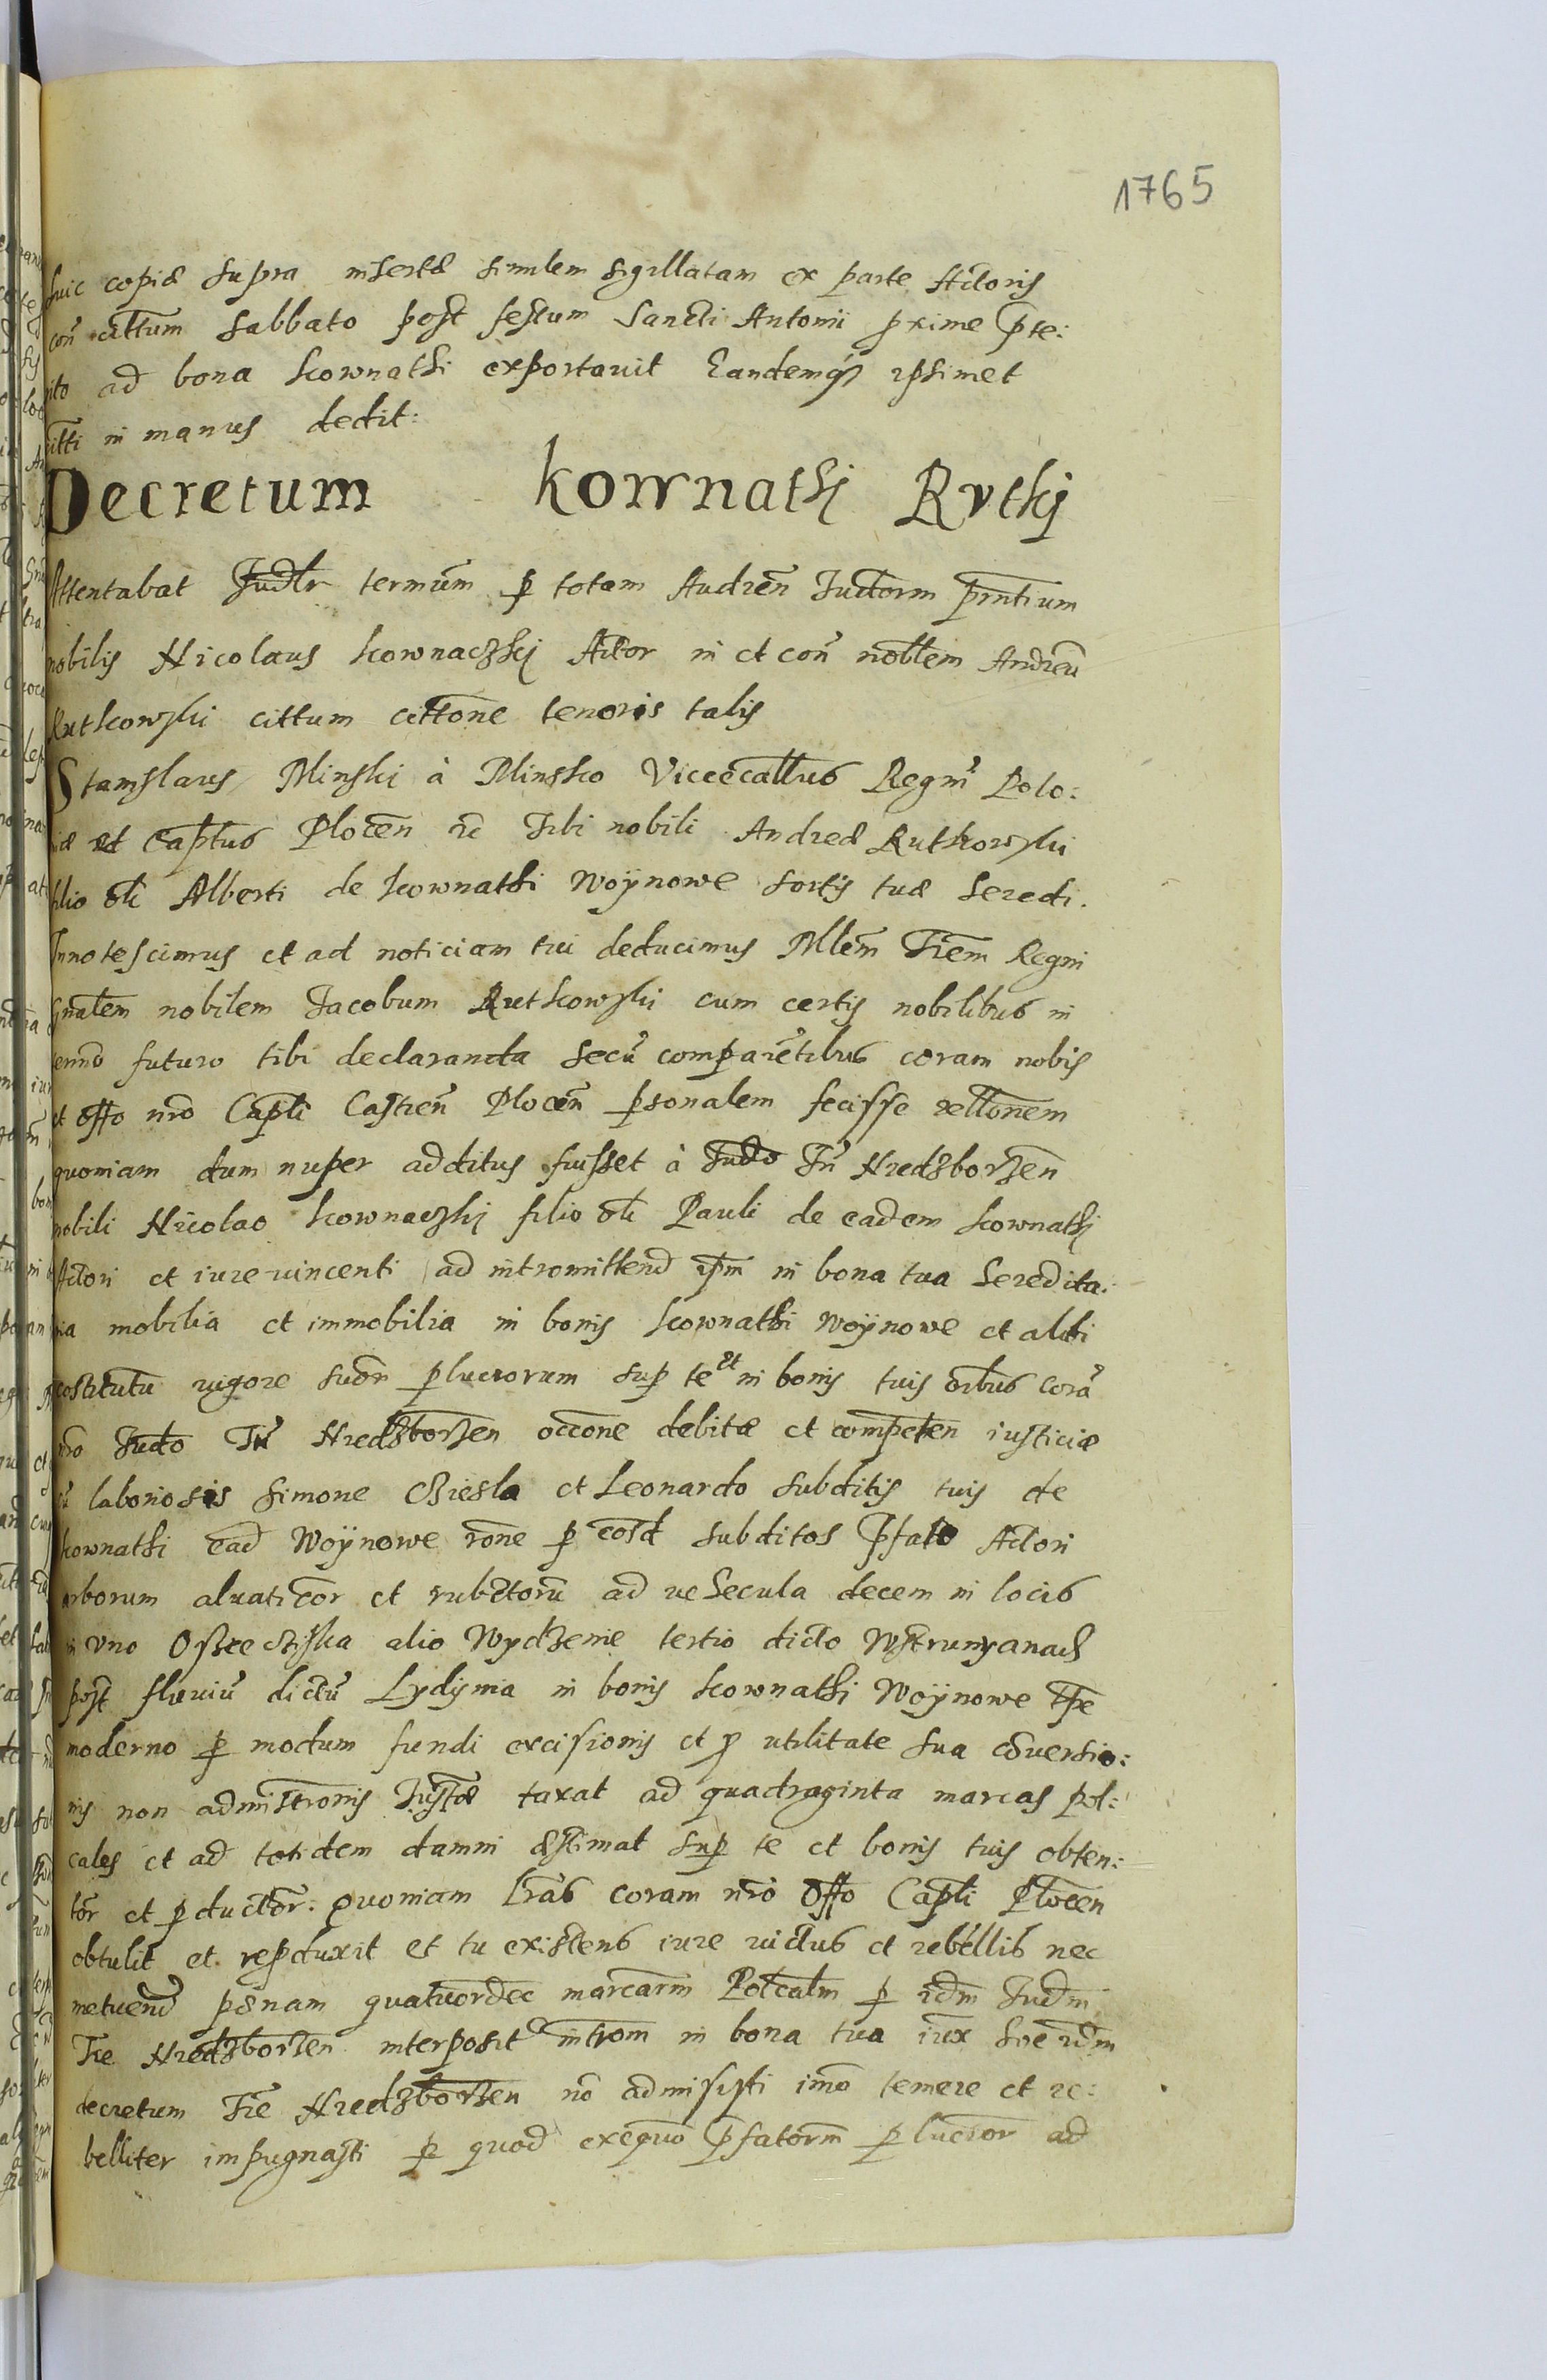 1765
huic copiæ supra insertæ similem sigillatam ex parte Actoris
con cittum Sabbato post festum Sancti Antonii proxime prte:
rito ad bona Kownathi exportavit Eandemq3 ipsimet
citti in manus dedit:
Decretum Kownathj Rvthj
Attentabat Judlr termum p totam Audien Judorm prntium
nobilis Nicolaus Kownaczkj Actor in et con nobllem Andreā
Rutkowski cittum cittone tenoris talis
Stanislaus Minski à Minsko Vicecallus Regni Polo:
niæ et Captus Plocen rc Tibi nobili Andreæ Rutkowski
filio olī Alberti de Kownathi Woÿnowe sortis tuæ heredi.
Innotescimus et ad noticiam tui deducimus Mlem Trem Regni
Gnalem nobilem Jacobum Rutkowski cum certis nobilibus in
termno futuro tibi declaranda secū comparētibus coram nobis
et Offo nro Capli Castren Plocen psonalem fecisse rellonem
quoniam dum nuper additus fuisset à Judo Tri Niedzborzen
nobili Nicolao Kownaczkj filio olī Pauli de eadem Kownathj
Actori et iure vincenti ad intromittend ipm in bona tua heredita:
ria mobilia et immobilia in bonis Kownathi Woÿnowe et alibi
costitutū vigore suor plucrorum sup te et in bonis tuis oibus corā
nro Judo Tri Niedzborzen occone debitæ et competen iusticiæ
cū laboriosis Simone Cziesla et Leonardo subditis tuis de
Kownathi ead Woÿnowe rone p eosd subditos pfato Actori
arborum aluaticor et rubctorū ad vehecula decem in locis
in uno Osiecziska alio Wydzenie tertio dicto Wstrumyanach
post fluviū dictū Lydynia in bonis Kownathi Woÿnowe tpe
moderno p modum fundi excisionis et p utilitate sua cōversio:
nis non admistronis Justæ taxat ad quadraginta marcas pol:
cales et ad totidem damni æstimat sup te et bonis tuis obten:
tor et pductor: quoniam Lras coram nro Offo Capli Plocen
obtulit et repduxit et tu existens iure victus et rebellis nec
metuend pœnam quatuordec marcarm Polcalm p idm Judm
Tre Niedzborzen interposit introm in bona tua iux hoc idm
decretum Tre Niedzborzen nō admisisti imo temere et re:
belliter impugnasti p quod exequo pfatorm plucror ad